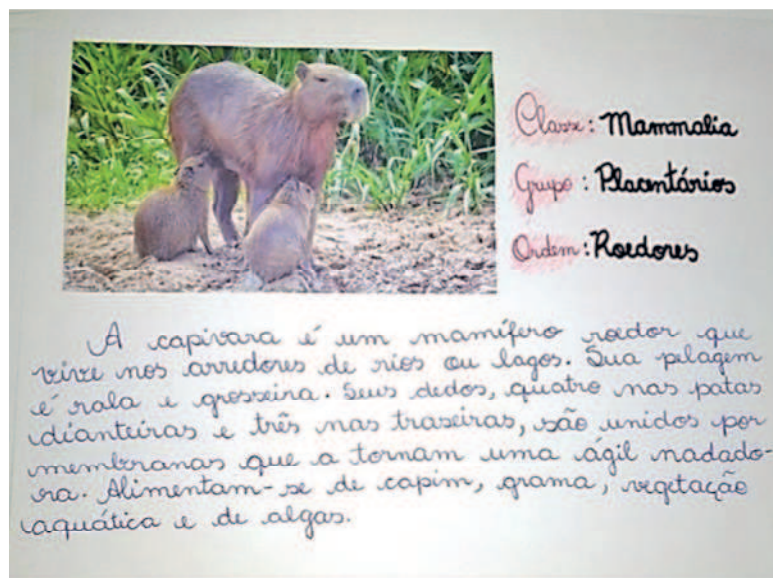 Classe: Mammalia
Grupo: Placentários
Ordem: Roedores
A capivara é um mamífero roedor que
vive nos arredores de rios ou lagos. Sua pelagem
é rala e grosseira. Seus dedos, quatro nas patas
dianteiras e três nas traseiras, são unidos por
membranas que a tornam uma ágil nadado-
ra. Alimentam-se de capim, grama, vegetação
aquática e de algas.